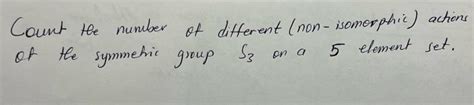 Count the number of different (non-isomorphic) actions
of the symmetric group S₃ on a 5 element set.